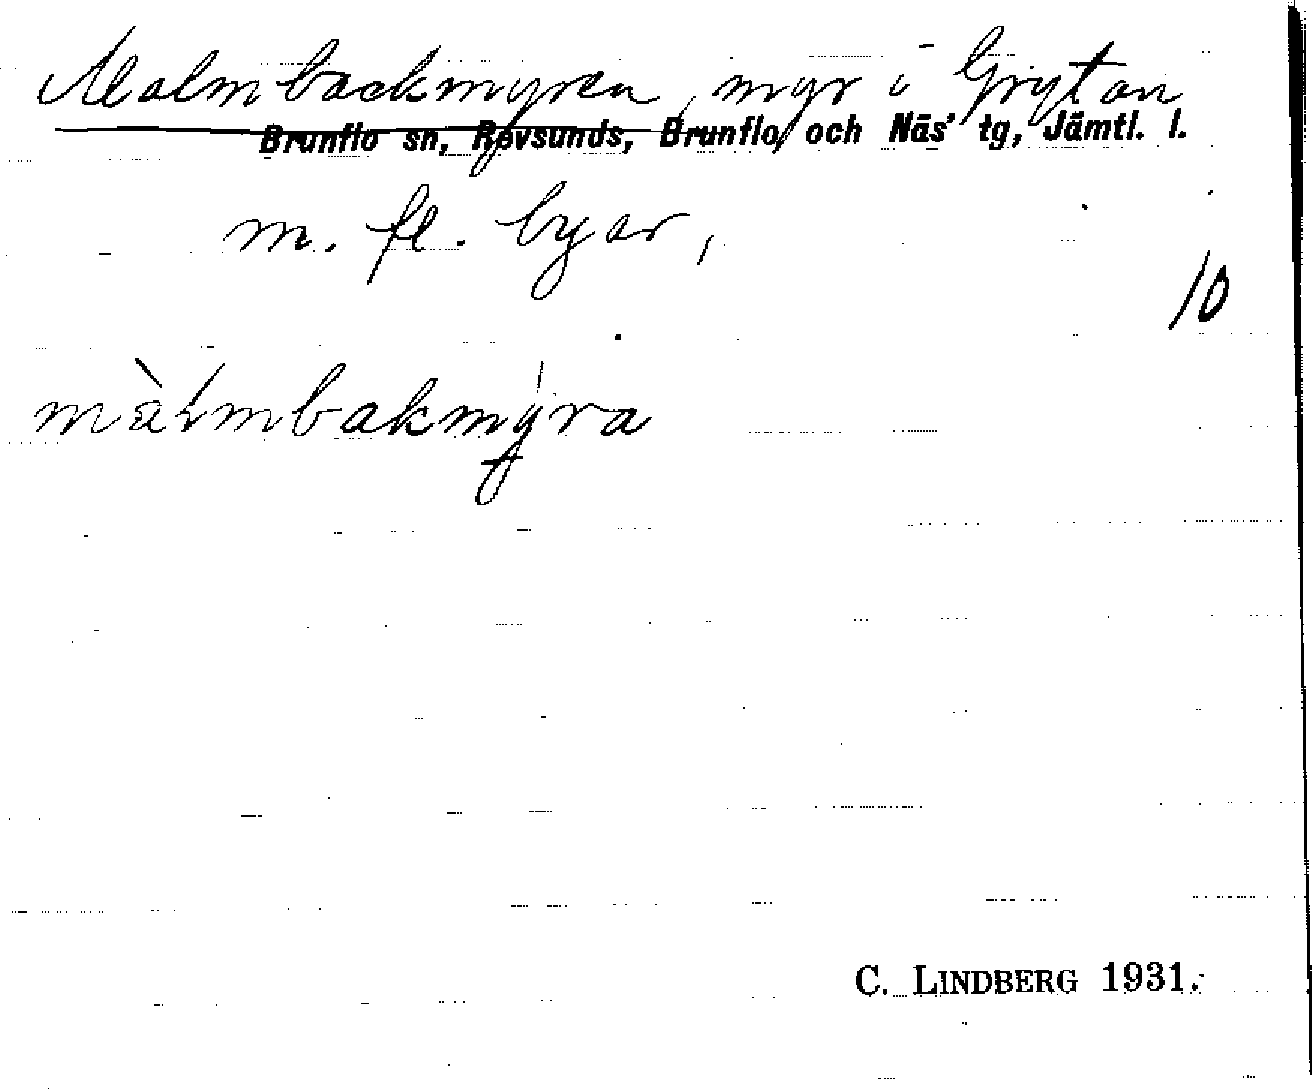 Malmbackmyren, myr i Grytan
Brunflo sn, Revsunds, Brunflo och Näs' tg, Jämtl. l.
m. fl. byar,
10
màlmbakmýra
C. LINDBERG 1931.